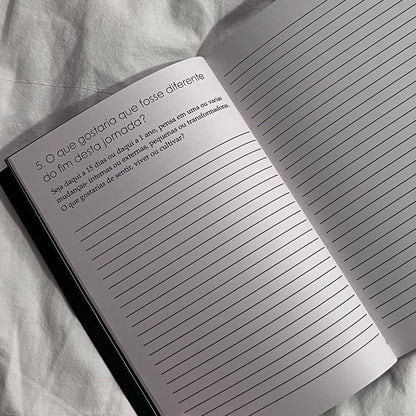 5. O que gostaria que fosse diferente
do fim desta jornada?
Seja daqui a 15 dias ou daqui a 1 ano, pensa em uma ou varias
mudanças, internas ou externas, pequenas ou transformadoras.
O que gostarias de sentir, viver ou cultivar?